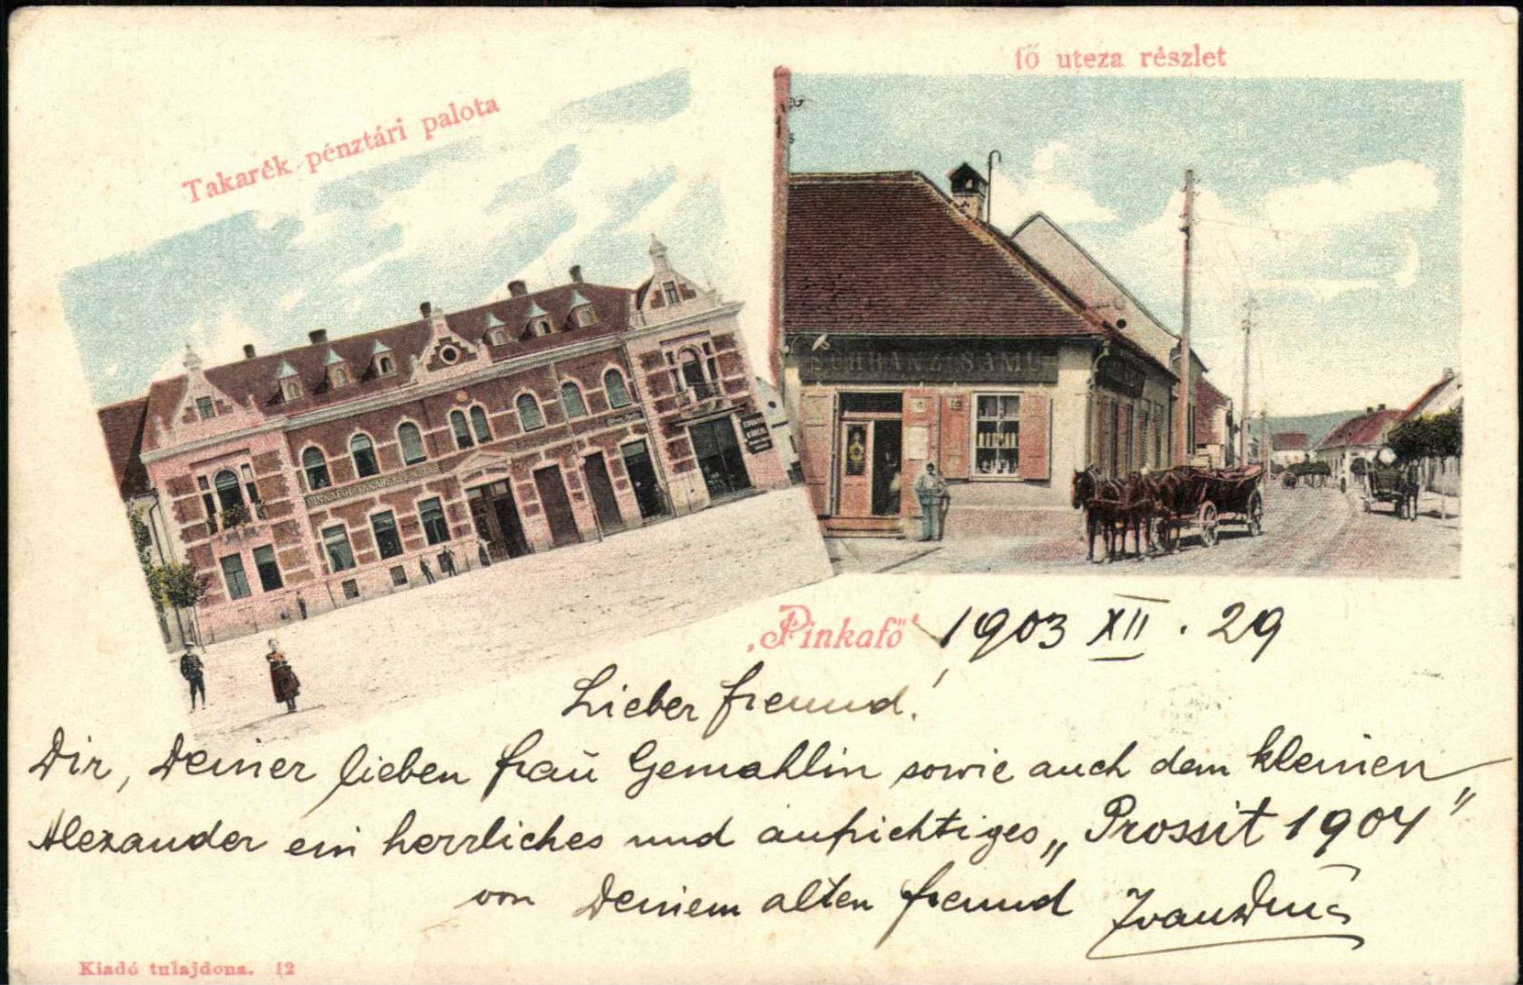 fő utcza részlet
Takarék pénztári palota
SCHRANZ SAMU
„Pinkafő“ 1903 XII. 29
Lieber Freund!
Dir, Deiner lieben Frau Gemahlin sowie auch dem kleinen
Alexander ein herrliches und aufrichtiges „Prossit 1904"
von Deinem alten Freund
Kiadó tulajdona. 12